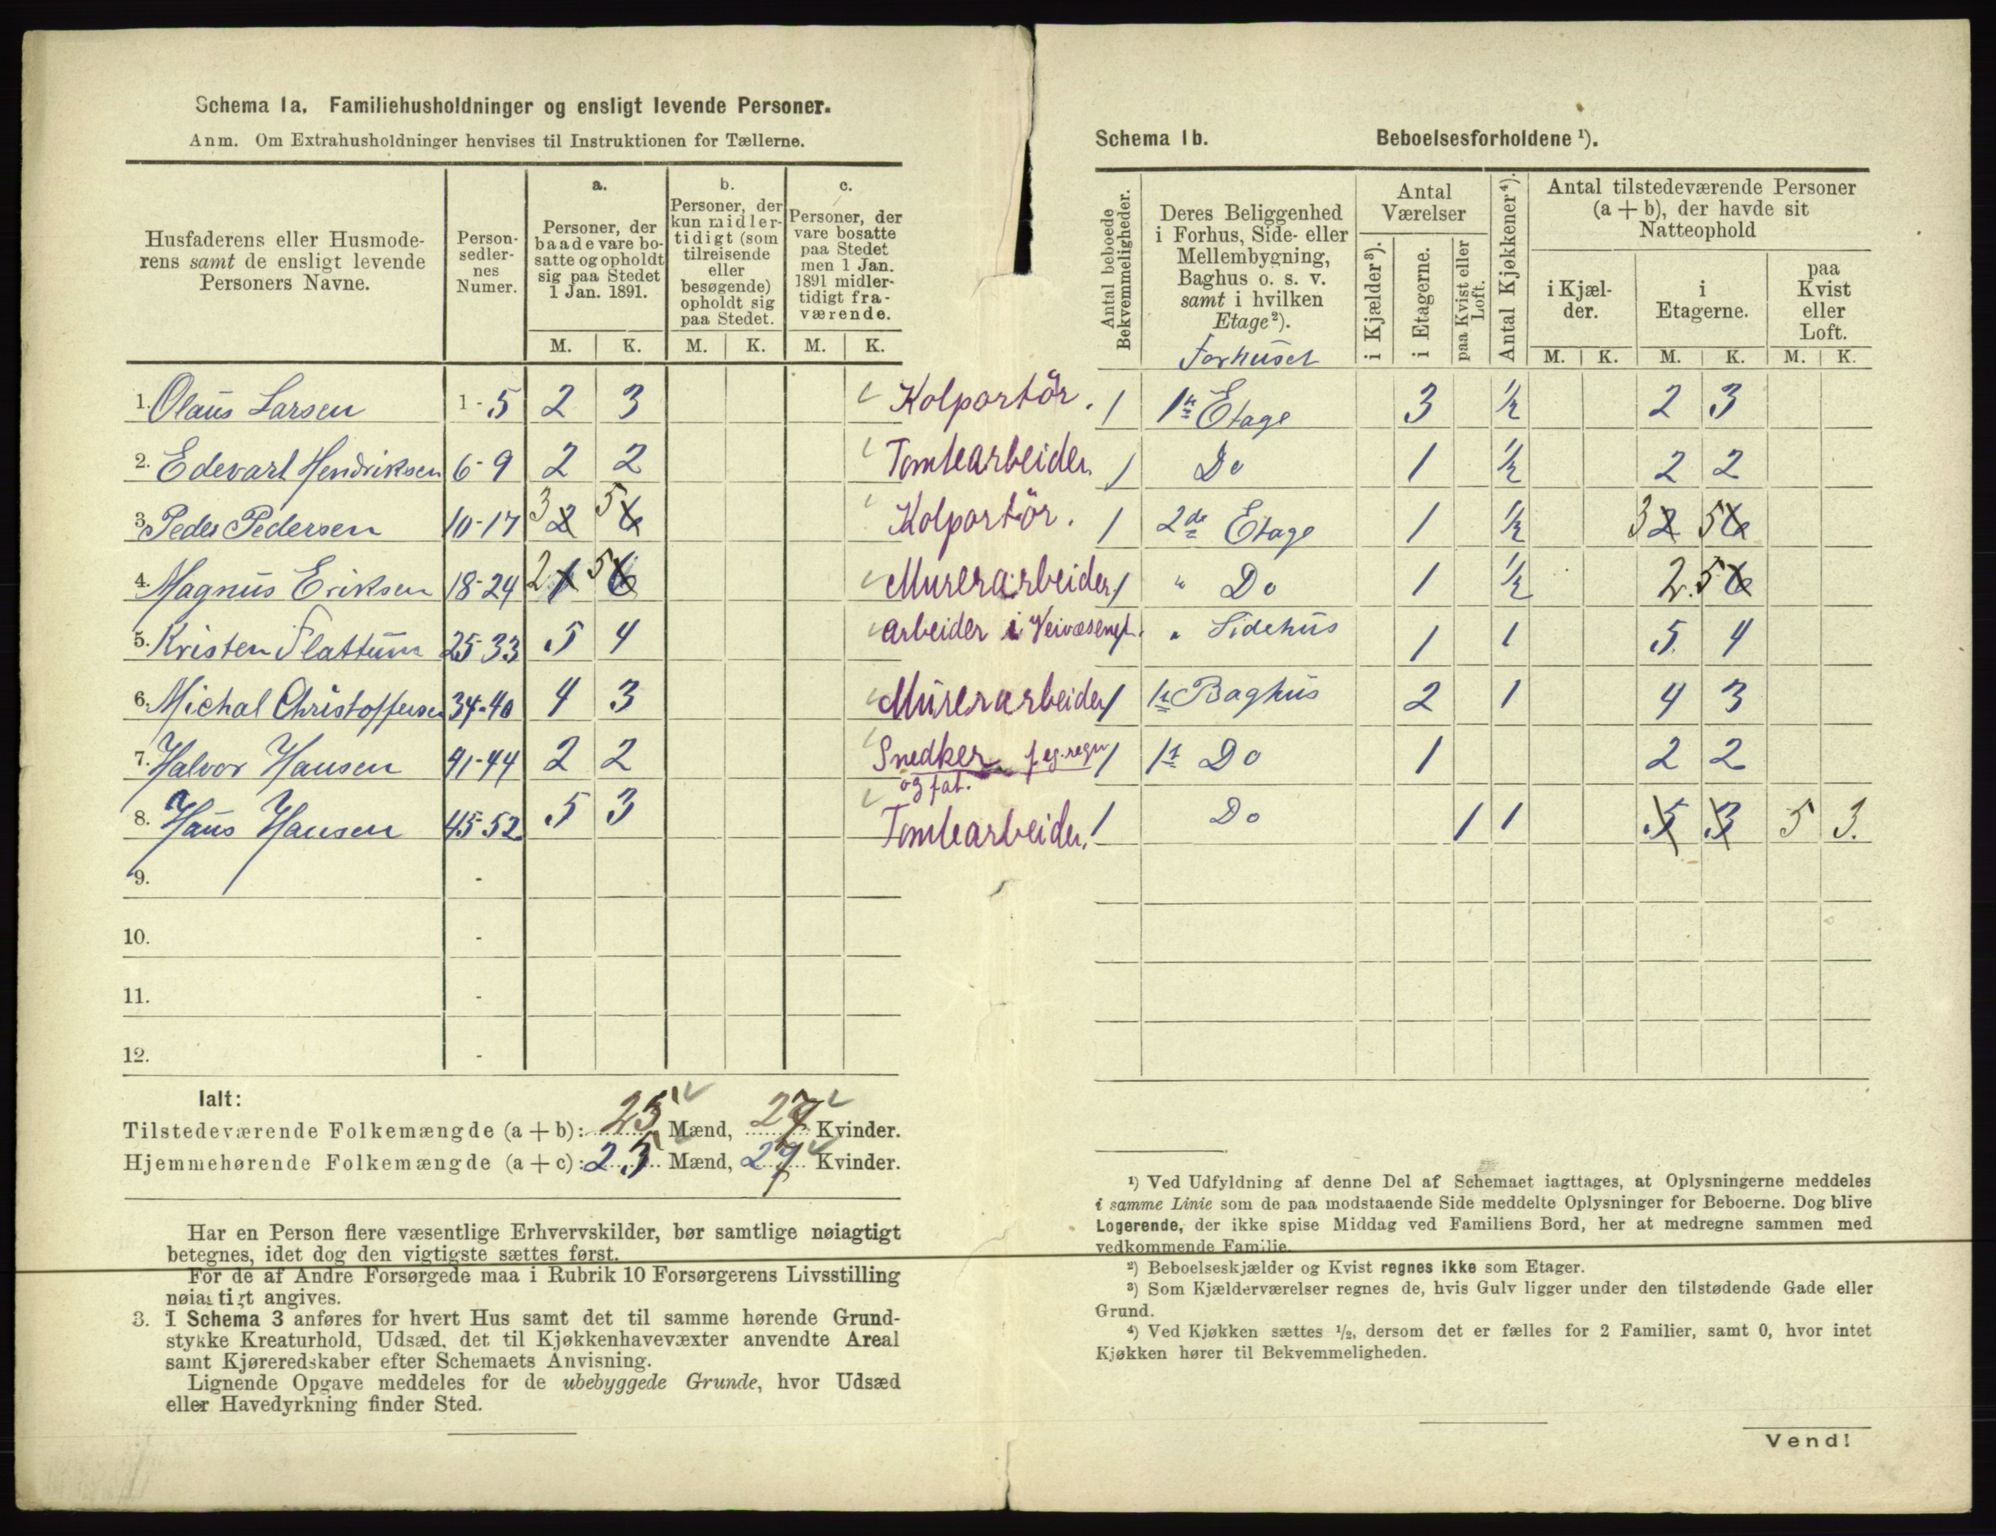 Schema 1a. Familiehusholdninger og ensligt levende Personer.
Anm. Om Extrahusholdninger henvises til Instruktionen for Tællerne.
Husfaderens eller Husmode-
rens samt de ensligt levende
Personers Navne.
Person-
sedler-
nes
Numer.
a.
Personer, der
baade vare bo-
satte og opholdt
sig paa Stedet
1 Jan. 1891.
b.
Personer, der
kun midler-
tidigt (som
tilreisende
eller
besøgende)
opholdt sig
paa Stedet.
c.
Personer, der
vare bosatte
paa Stedet
men 1 Jan.
1891 midler-
tidigt fra-
værende.
M. K. M. K. M. K.
1. Olaus Larsen 1-5 2 3 Kolportör.
2. Edevart Hendriksen 6-9 2 2 Tomtearbeider
3. Peder Pedersen 10-17 3 2 5 6 Kolportör.
4. Magnus Eriksen 18-24 2 1 5 6 Murerarbeider
5. Kristen Flattum 25-33 5 4 arbeider i Veivæsenet.
6. Michal Christoffersen 34-40 4 3 Murerarbeider
7. Halvor Hansen 41-44 2 2 Snedker f. eg. regn
og fat.
8. Hans Hansen 45-52 5 3 Tomtearbeider.
9. -
10. -
11. -
12. -
Ialt:
Tilstedeværende Folkemængde (a + b): 25 Mænd, 27 Kvinder.
Hjemmehørende Folkemængde (a + c): 25 Mænd, 27 Kvinder.
Har en Person flere væsentlige Erhvervskilder, bør samtlige nøiagtigt
betegnes, idet dog den vigtigste sættes først.
For de af Andre Forsørgede maa i Rubrik 10 Forsørgerens Livsstilling
nøiagtigt angives.
3. I Schema 3 anføres for hvert Hus samt det til samme hørende Grund-
stykke Kreaturhold, Udsæd, det til Kjøkkenhavevæxter anvendte Areal
samt Kjøreredskaber efter Schemaets Anvisning.
Lignende Opgave meddeles for de ubebyggede Grunde, hvor Udsæd
eller Havedyrkning finder Sted.
Schema 1b. Beboelsesforholdene ¹).
Antal beboede
Bekvemmeligheder.
Deres Beliggenhed
i Forhus, Side- eller
Mellembygning,
Baghus o. s. v.
samt i hvilken
Etage²).
Forhuset
Antal
Værelser
i Kjælder³).
i Etagerne.
paa Kvist eller
Loft.
Antal Kjøkkener⁴).
Antal tilstedeværende Personer
(a + b), der havde sit
Natteophold
i Kjæl-
der.
i
Etagerne.
paa
Kvist
eller
Loft.
M. K. M. K. M. K.
1 1ste Etage 3 ½ 2 3
1 Do 1 ½ 2 2
1 2de Etage 1 ½ 3 2 5 6
1 " Do 1 ½ 2 5 6
" Sidehus 1 1 5 4
1 1ste Baghus 2 1 4 3
1 1st Do 1 2 2
1 Do 1 1 5 3 5 3.
¹) Ved Udfyldning af denne Del af Schemaet iagttages, at Oplysningerne meddeles
i samme Linie som de paa modstaaende Side meddelte Oplysninger for Beboerne. Dog blive
Logerende, der ikke spise Middag ved Familiens Bord, her at medregne sammen med
vedkommende Familie.
²) Beboelseskjælder og Kvist regnes ikke som Etager.
³) Som Kjælderværelser regnes de, hvis Gulv ligger under den tilstødende Gade eller
Grund.
⁴) Ved Kjøkken sættes ½, dersom det er fælles for 2 Familier, samt 0, hvor intet
Kjøkken hører til Bekvemmeligheden.
Vend!